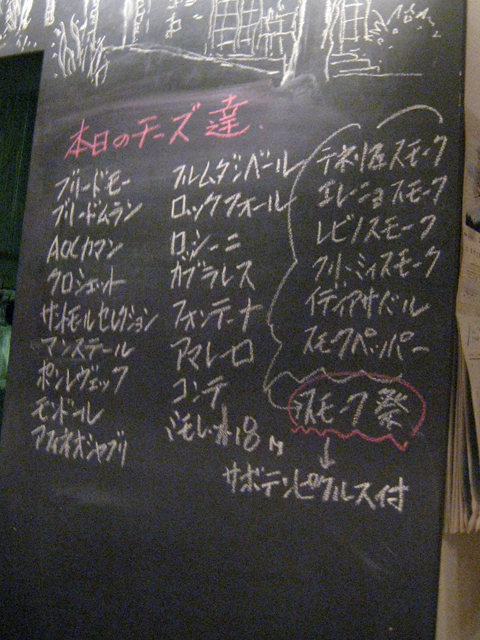 本日のチーズ達
ブリードモー
ブリードムラン
AOCカマン
クロシェット
サントモールセレクション
マンステール
ポンレヴェック
モンドール
フルムダンベール
ロックフォール
ロシーニ
カブラレス
フォンティーナ
アマレーロ
コンテ
ミモレット18ヶ月
テネリ屋スモーク
エレーニョスモーク
レビノスモーク
クリーミィスモーク
イディアサバル
スモークペッパー
スモーク祭
↓
サボテンピクルス付